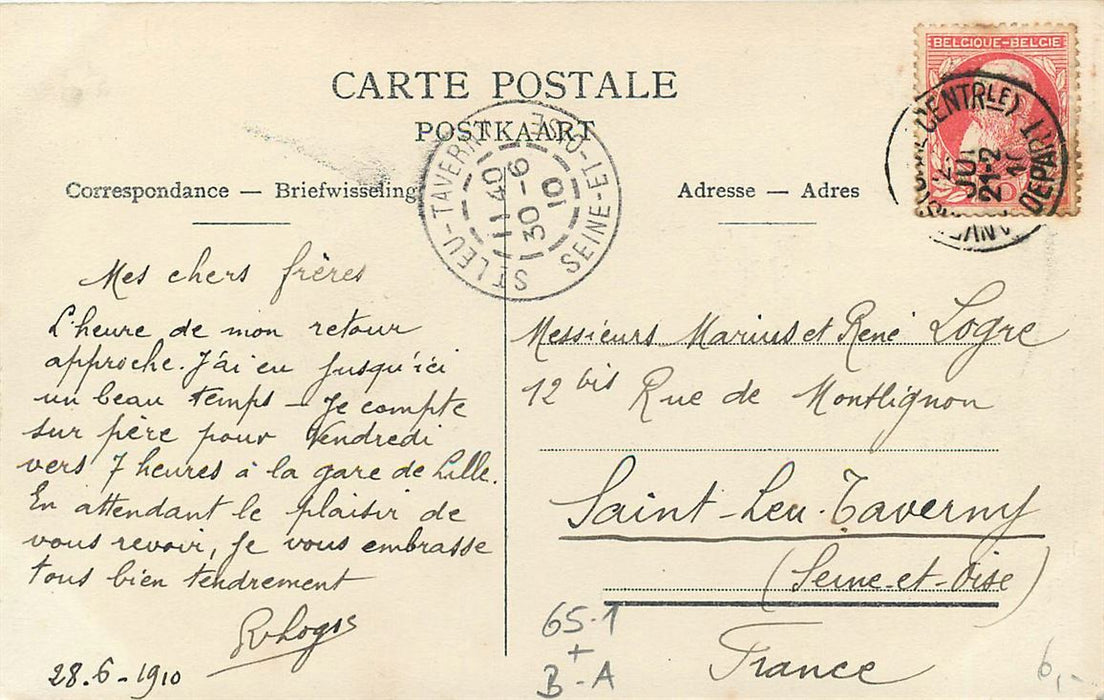 CARTE POSTALE
POSTKAART
Correspondance — Briefwisseling
Adresse — Adres
BELGIQUE-BELGIE
(CENTRLE) DEPART
JUI
21-2
ST LEU-TAVERNY SEINE-ET-OISE
11 40
30 -6
10
Mes chers frères
L'heure de mon retour
approche. J'ai eu jusqu'ici
un beau temps – Je compte
sur père pour Vendredi
vers 7 heures à la gare de Lille.
En attendant le plaisir de
vous revoir, je vous embrasse
tous bien tendrement
28.6-1910
Messieurs Marius et René Logre
12 bis Rue de Montlignon
Saint-Leu-Taverny
(Seine-et-Oise)
France
65-1
+
B-A
6,-